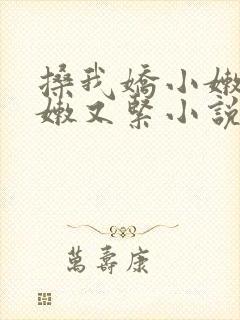 搡我嬌小嫩
嫩又緊小說
萬壽康